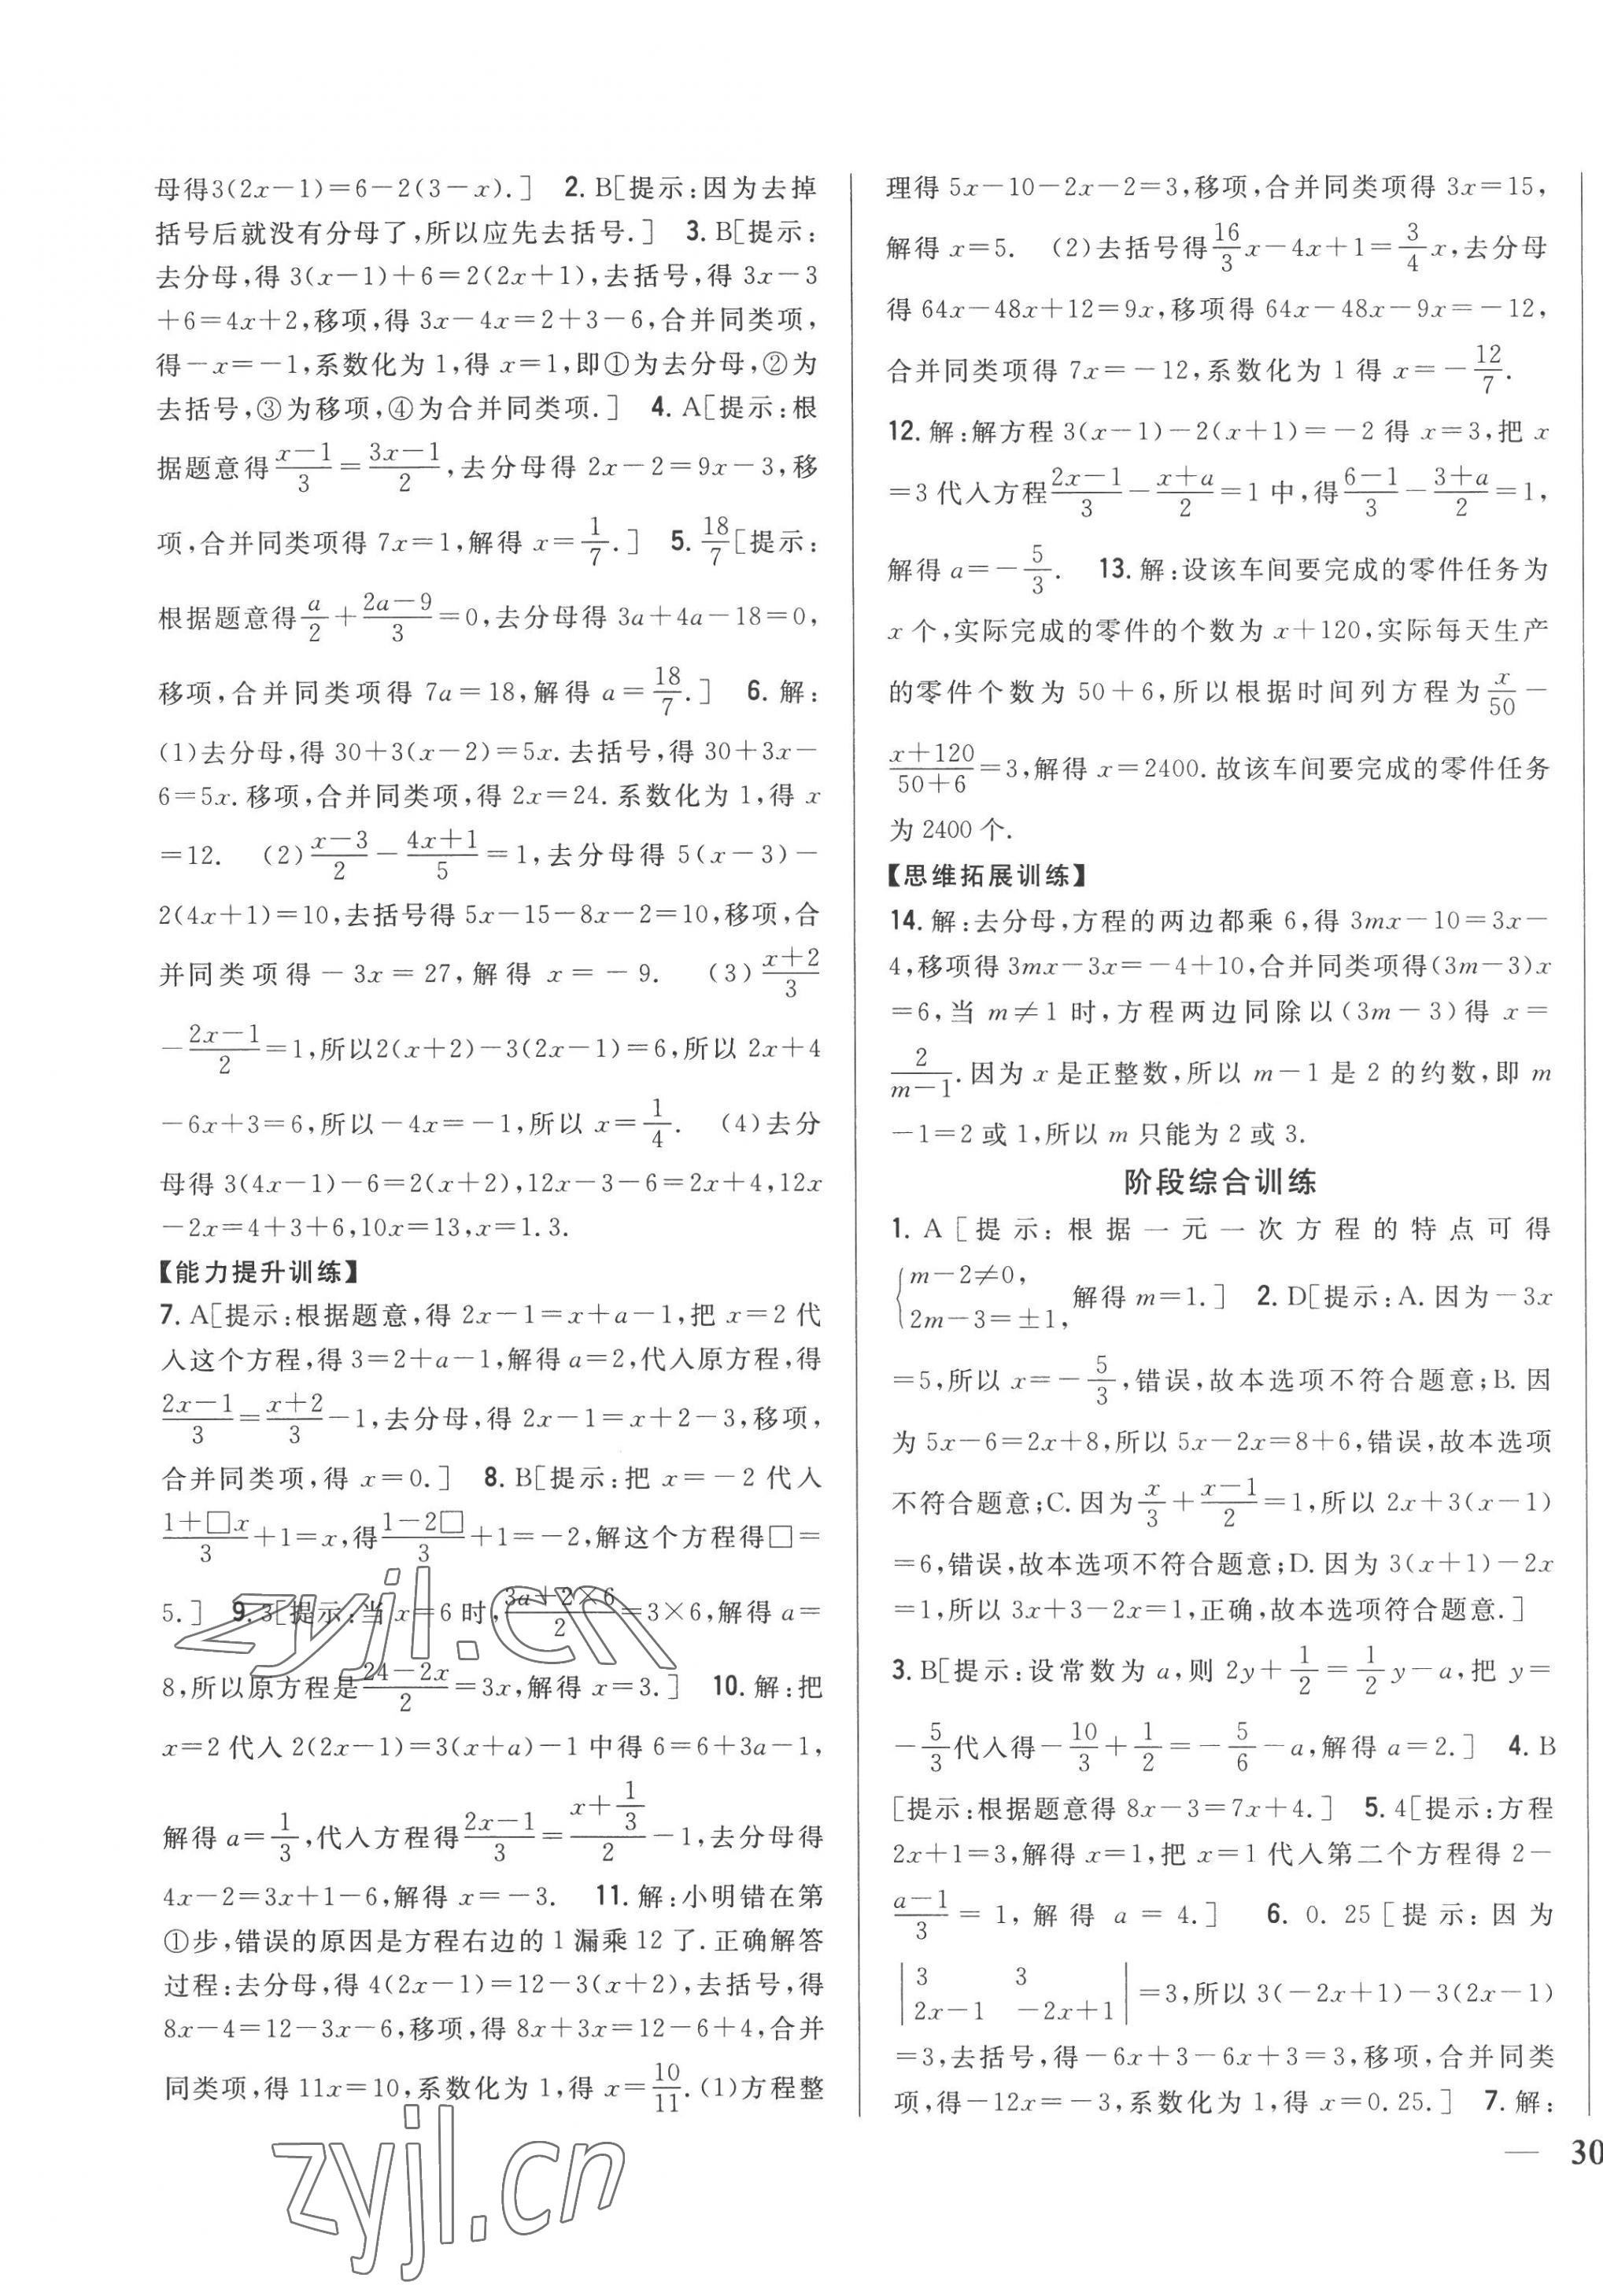 母得3(2x-1)=6-2(3-x).] 2. B[提示:因为去掉
括号后就没有分母了,所以应先去括号.] 3. B[提示:
去分母,得 3(x-1)+6=2(2x+1),去括号,得 3x-3
+6=4x+2,移项,得 3x-4x=2+3-6,合并同类项,
得-x=-1,系数化为 1,得 x=1,即①为去分母,②为
去括号,③为移项,④为合并同类项.] 4. A[提示:根
据题意得\frac{x-1}{3}=\frac{3x-1}{2},去分母得 2x-2=9x-3,移
项,合并同类项得 7x=1,解得 x=\frac{1}{7}.] 5. \frac{18}{7}[提示:
根据题意得\frac{a}{2}+\frac{2a-9}{3}=0,去分母得 3a+4a-18=0,
移项,合并同类项得 7a=18,解得 a=\frac{18}{7}.] 6. 解:
(1)去分母,得 30+3(x-2)=5x. 去括号,得 30+3x-
6=5x. 移项,合并同类项,得 2x=24. 系数化为 1,得 x
=12. (2)\frac{x-3}{2}-\frac{4x+1}{5}=1,去分母得 5(x-3)-
2(4x+1)=10,去括号得 5x-15-8x-2=10,移项,合
并同类项得-3x=27,解得 x=-9. (3)\frac{x+2}{3}
-\frac{2x-1}{2}=1,所以2(x+2)-3(2x-1)=6,所以 2x+4
-6x+3=6,所以-4x=-1,所以 x=\frac{1}{4}. (4)去分
母得 3(4x-1)-6=2(x+2),12x-3-6=2x+4,12x
-2x=4+3+6,10x=13,x=1.3.
【能力提升训练】
7. A[提示:根据题意,得 2x-1=x+a-1,把 x=2 代
入这个方程,得 3=2+a-1,解得 a=2,代入原方程,得
\frac{2x-1}{3}=\frac{x+2}{3}-1,去分母,得 2x-1=x+2-3,移项,
合并同类项,得 x=0.] 8. B[提示:把 x=-2 代入
\frac{1+□x}{3}+1=x,得\frac{1-2□}{3}+1=-2,解这个方程得□=
5.] 9. 3[提示:当 x=6 时,\frac{3a+2×6}{2}=3×6,解得 a=
8,所以原方程是\frac{24-2x}{2}=3x,解得 x=3.] 10. 解:把
x=2 代入 2(2x-1)=3(x+a)-1 中得 6=6+3a-1,
解得 a=\frac{1}{3},代入方程得\frac{2x-1}{3}=\frac{x+\frac{1}{3}}{2}-1,去分母得
4x-2=3x+1-6,解得 x=-3. 11. 解:小明错在第
①步,错误的原因是方程右边的 1 漏乘 12 了. 正确解答
过程:去分母,得 4(2x-1)=12-3(x+2),去括号,得
8x-4=12-3x-6,移项,得 8x+3x=12-6+4,合并
同类项,得 11x=10,系数化为 1,得 x=\frac{10}{11}. (1)方程整
理得 5x-10-2x-2=3,移项,合并同类项得 3x=15,
解得 x=5. (2)去括号得\frac{16}{3}x-4x+1=\frac{3}{4}x,去分母
得 64x-48x+12=9x,移项得 64x-48x-9x=-12,
合并同类项得 7x=-12,系数化为 1 得 x=-\frac{12}{7}.
12. 解:解方程 3(x-1)-2(x+1)=-2 得 x=3,把 x
=3 代入方程\frac{2x-1}{3}-\frac{x+a}{2}=1 中,得\frac{6-1}{3}-\frac{3+a}{2}=1,
解得 a=-\frac{5}{3}. 13. 解:设该车间要完成的零件任务为
x 个,实际完成的零件的个数为 x+120,实际每天生产
的零件个数为 50+6,所以根据时间列方程为\frac{x}{50}-
\frac{x+120}{50+6}=3,解得 x=2400. 故该车间要完成的零件任务
为 2400 个.
【思维拓展训练】
14. 解:去分母,方程的两边都乘 6,得 3mx-10=3x-
4,移项得 3mx-3x=-4+10,合并同类项得(3m-3)x
=6,当 m≠1 时,方程两边同除以(3m-3)得 x=
\frac{2}{m-1}. 因为 x 是正整数,所以 m-1 是 2 的约数,即 m
-1=2 或 1,所以 m 只能为 2 或 3.
阶段综合训练
1. A[提示:根据一元一次方程的特点可得
{m-2≠0,
2m-3=±1, 解得 m=1.] 2. D[提示:A. 因为-3x
=5,所以 x=-\frac{5}{3},错误,故本选项不符合题意;B. 因
为 5x-6=2x+8,所以 5x-2x=8+6,错误,故本选项
不符合题意;C. 因为\frac{x}{3}+\frac{x-1}{2}=1,所以 2x+3(x-1)
=6,错误,故本选项不符合题意;D. 因为 3(x+1)-2x
=1,所以 3x+3-2x=1,正确,故本选项符合题意.]
3. B[提示:设常数为 a,则 2y+\frac{1}{2}=\frac{1}{2}y-a,把 y=
-\frac{5}{3}代入得-\frac{10}{3}+\frac{1}{2}=-\frac{5}{6}-a,解得 a=2.] 4. B
[提示:根据题意得 8x-3=7x+4.] 5. 4[提示:方程
2x+1=3,解得 x=1,把 x=1 代入第二个方程得 2-
\frac{a-1}{3}=1,解得 a=4.] 6. 0.25[提示:因为
|3 3
2x-1 -2x+1|=3,所以 3(-2x+1)-3(2x-1)
=3,去括号,得-6x+3-6x+3=3,移项,合并同类
项,得-12x=-3,系数化为 1,得 x=0.25.] 7. 解:
— 30
zyjl.cn
zyjl.cn